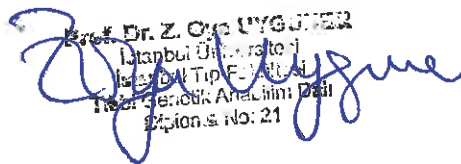 Prof. Dr. Z. Oya UYGUNER
İstanbul Üniversitesi
İstanbul Tıp Fakültesi
Tıbbi Genetik Anabilim Dalı
Diploma No: 21